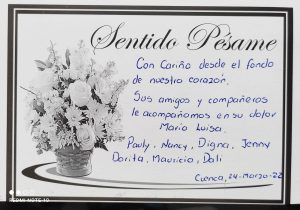 Sentido Pésame
Con Cariño desde el fondo
de nuestro corazón.
Sus amigos y compañeros
le acompañamos en su dolor
Maria Luisa.
Pauly, Nancy, Digna, Jenny
Dorita, Mauricio, Dali
Cuenca, 24-Marzo-22
REDMI NOTE 10